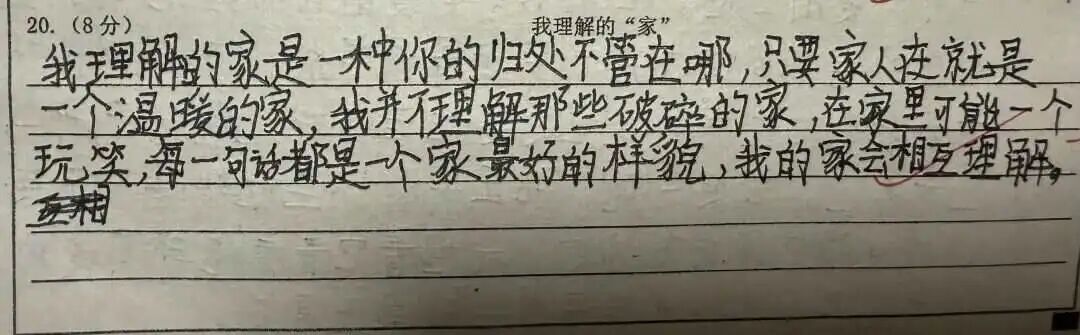 20.（8分） 我理解的“家”
我理解的家是一种你的归处不管在哪,只要家人在就是
一个温暖的家,我并不理解那些破碎的家,在家里可能一个
玩笑,每一句话都是一个家最好的样貌,我的家会相互理解。